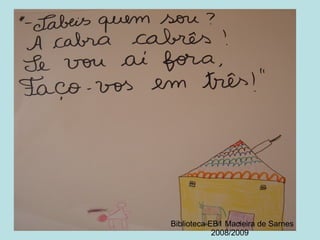 "-Sabeis quem sou?
A cabra cabrês!
Se vou aí fora,
Faço-vos em três!"
Biblioteca-EB1 Madeira de Sarnes
2008/2009